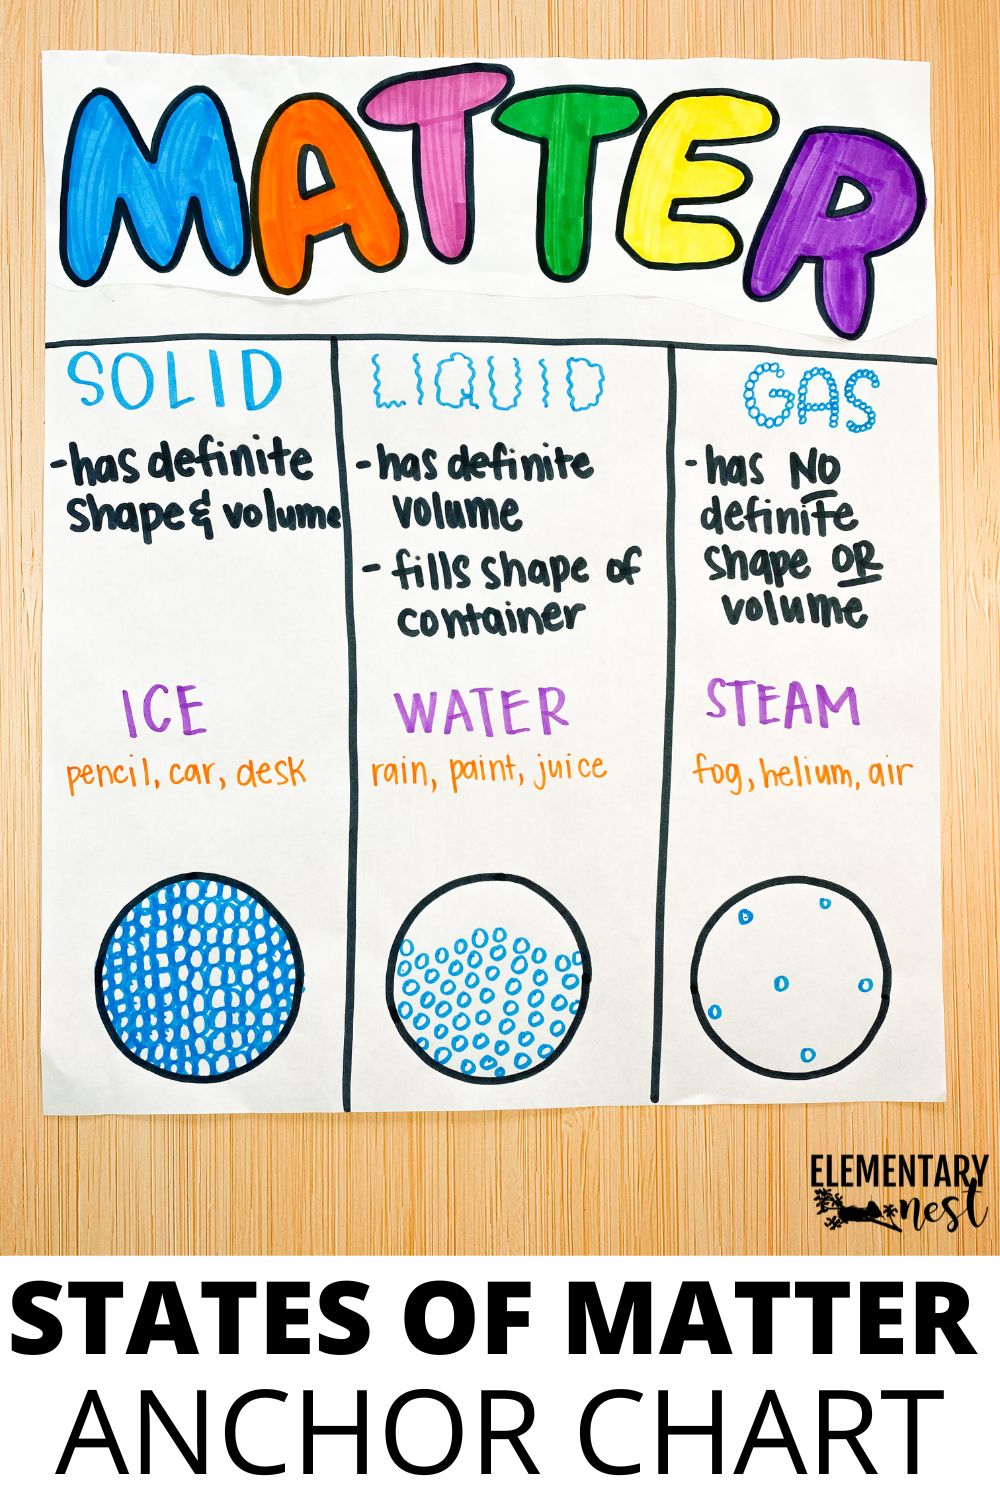 MATTER
SOLID
-has definite
shape & volume
LIQUID
-has definite
volume
- fills shape of
container
GAS
-has NO
definite
shape OR
volume
ICE
pencil, car, desk
WATER
rain, paint, juice
STEAM
fog, helium, air
ELEMENTARY
nest
STATES OF MATTER
ANCHOR CHART